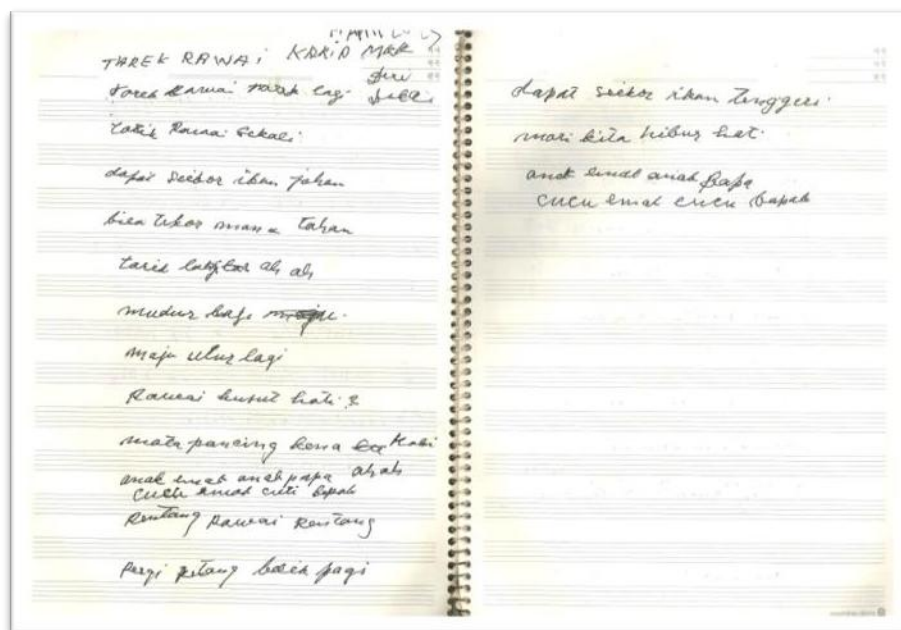 TAREK RAWAI KARIO MAR
tarek rawai tarek lagi
tarik Rawai sekali
dapat seekor ikan johan
bila tekor mana tahan
tarik ah ah
mundur lagi
maju ulur lagi
Rawai kusut hati2
mata pancing kena kaki
anak emak anak papa ah ah
cucu emak cucu bapak
Rentang Rawai Rentang
pergi petang balik pagi
dapat seekor ikan tenggiri.
mari kita hibur hati.
anak emak anak papa
cucu emak cucu bapak